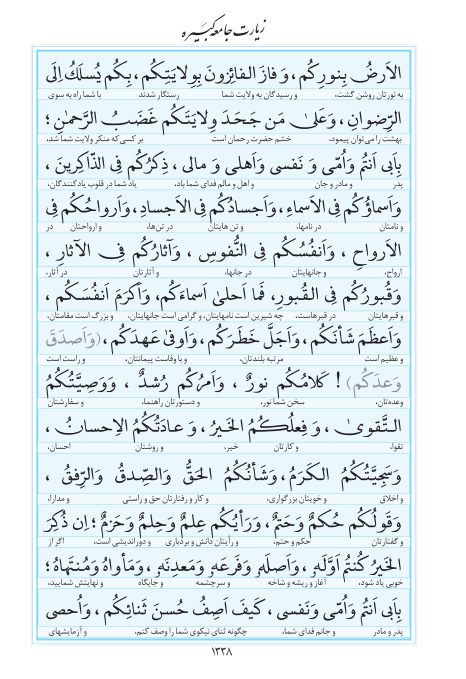 زیارت جامعه کبیره
الاَرضُ بِنورِکُم، وَ فازَ الفائِزونَ بِوِلایَتِکُم، بِکُم یُسلَکُ اِلَی
به نورتان روشن گشت، و رسیدگان به ولایت شما رستگار شدند با شما راه به سوی
الرِّضوانِ، وَ عَلیٰ مَن جَحَدَ وِلایَتَکُم غَضَبُ الرَّحمٰنِ؛
بهشت را می‌توان پیمود، خشم حضرت رحمان است بر کسی‌که منکر ولایت شما شد،
بِاَبی اَنتُم وَ اُمّی وَ نَفسی وَ اَهلی وَ مالی، ذِکرُکُم فِی الذّاکِرینَ،
پدر و مادر و جان و اهل و مالم فدای شما باد، یاد شما در قلوب یادکنندگان،
وَ اَسماؤُکُم فِی الاَسماءِ، وَ اَجسادُکُم فِی الاَجسادِ، وَ اَرواحُکُم فِی
و نامتان در نامها، و تن هایتان در تن‌ها، و ارواحتان در
الاَرواحِ، وَ اَنفُسُکُم فِی النُّفوسِ، وَ آثارُکُم فِی الآثارِ،
ارواح، و جانهایتان در جانها، و آثارتان در آثار،
وَ قُبورُکُم فِی القُبورِ، فَما اَحلیٰ اَسماءَکُم، وَ اَکرَمَ اَنفُسَکُم،
و قبرهایتان در قبرهاست، چه شیرین است نامهایتان، و گرامی است جانهایتان، و بزرگ است مقامتان،
وَ اَعظَمَ شَأنَکُم، وَ اَجَلَّ خَطَرَکُم، وَ اَوفیٰ عَهدَکُم، (وَ اَصدَقَ
و عظیم است مرتبه بلندتان، و با وفاست پیمانتان، و راست است
وَعدَکُم)! کَلامُکُم نورٌ، وَ اَمرُکُم رُشدٌ، وَ وَصِیَّتُکُمُ
وعده‌تان، سخن شما نور، و دستورتان راهنما، و سفارشتان
التَّقویٰ، وَ فِعلُکُمُ الخَیرُ، وَ عادَتُکُمُ الاِحسانُ،
تقوا، و کارتان خیر، و روشتان احسان،
وَ سَجِیَّتُکُمُ الکَرَمُ، وَ شَأنُکُمُ الحَقُّ وَ الصِّدقُ وَ الرِّفقُ،
و اخلاق و خویتان بزرگواری، و کار و رفتارتان حق و راستی و مدارا،
وَ قَولُکُم حُکمٌ وَ حَتمٌ، وَ رَأیُکُم عِلمٌ وَ حِلمٌ وَ حَزمٌ؛ اِن ذُکِرَ
و گفتارتان حکم و حتم، و رأیتان دانش و بردباری و دوراندیشی است، اگر از
الخَیرُ کُنتُم اَوَّلَهُ، وَ اَصلَهُ وَ فَرعَهُ وَ مَعدِنَهُ، وَ مَأواهُ وَ مُنتَهاهُ؛
خوبی یاد شود، آغاز و ریشه و شاخه و سرچشمه و جایگاه و نهایتش شمایید،
بِاَبی اَنتُم وَ اُمّی وَ نَفسی، کَیفَ اَصِفُ حُسنَ ثَنائِکُم، وَ اُحصی
پدر و مادر و جانم فدای شما، چگونه ثنای نیکوی شما را وصف کنم، و آزمایشهای
۱۳۳۸